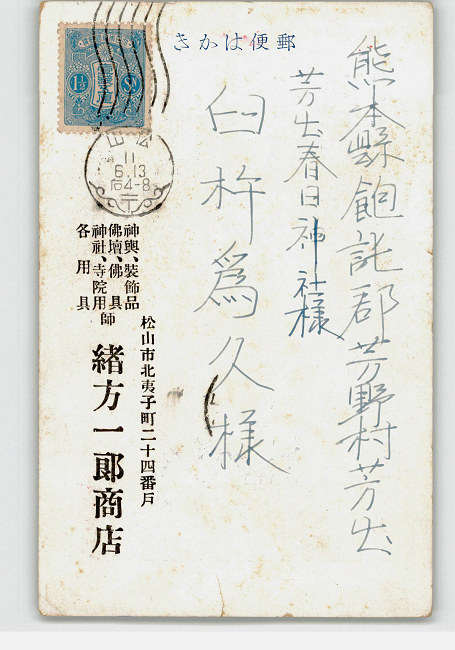 きかは便郵
熊本縣飽託郡芳野村芳出
芳出春日神社様
臼杵為久様
松山
11
6.13
后4-8
1½
神輿、装飾品
佛壇、佛具
神社、寺院用
各用具
師
松山市北夷子町二十四番戸
緒方一郎商店